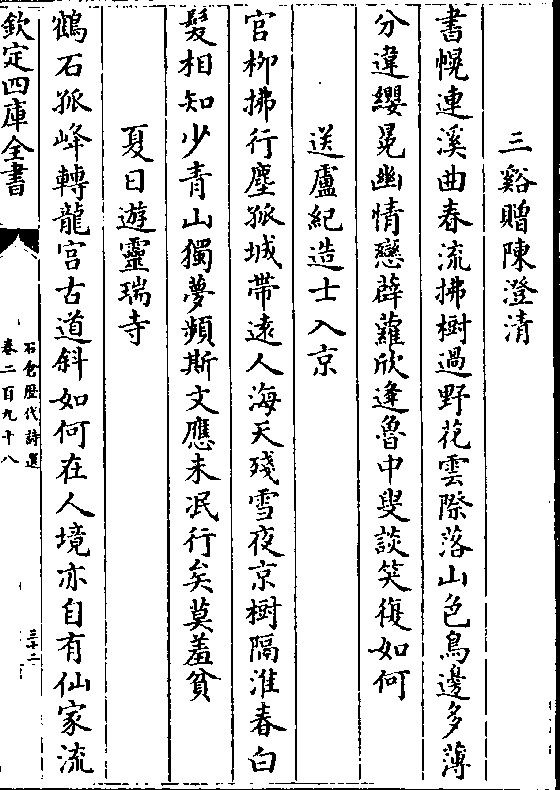 三谿贈陳澄清
書幌連溪曲春流拂樹過野花雲際落山色鳥邊多薄
分違纓冕幽情戀薜蘿欣逢魯中叟談笑復如何
送盧紀造士入京
官柳拂行塵孤城帶遠人海天殘雪夜京樹隔淮春白
髮相知少青山獨夢頻斯文應未泯行矣莫羞貧
夏日遊靈瑞寺
鶴石孤峰轉龍宮古道斜如何在人境亦自有仙家流
欽定四庫全書
石倉歷代詩選
卷二百九十八
三十二